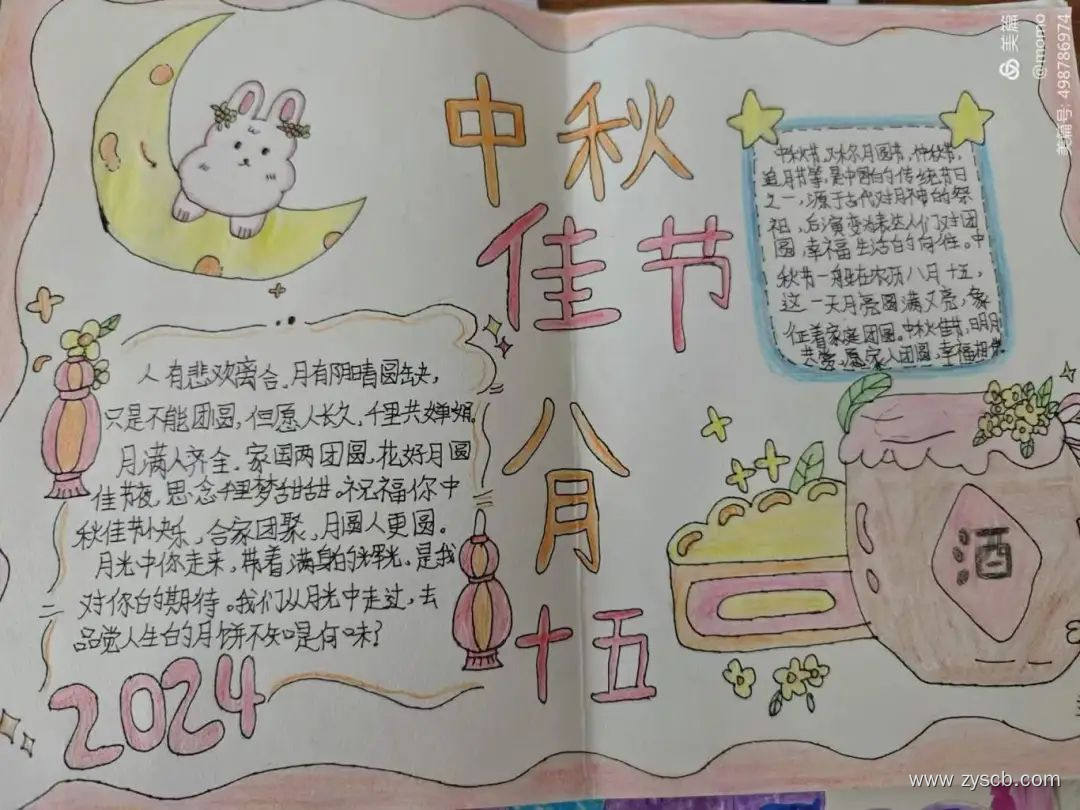 中秋
佳节
八月
十五
中秋节,又称月圆节,仲秋节,
追月节等,是中国的传统节日
之一,源于古代对月神的祭
祖,后演变为表达人们对团
圆幸福生活的向往。中
秋节一般在农历八月十五,
这一天月亮圆满又亮,象
征着家庭团圆。中秋佳节,明月
共赏,愿家人团圆,幸福相伴
人有悲欢离合.月有阴晴圆缺,
只是不能团圆,但愿人长久,千里共婵娟.
月满人齐全.家国两团圆,花好月圆
佳节夜,思念千里梦甜甜.祝福你中
秋佳节快乐,合家团聚,月圆人更圆。
月光中你走来,带着满身的辉光.是我
对你的期待。我们从月光中走过,去
品觉人生的月饼不知是何味?
2024
酒
美篇
@momo
美篇号:498786974
www.zyscb.com